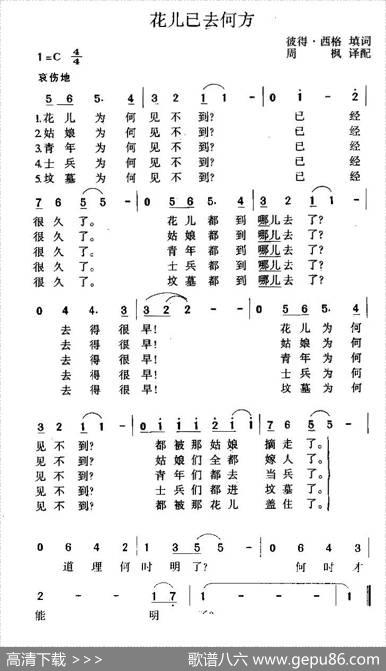 花儿已去何方
彼得·西格 填词
周 枫 译配
1=C 4/4
哀伤地
5 6 5. 4 3 2 1 1 - 0 i - 2
1.花儿为何见不到? 已经
2.姑娘为何见不到? 已经
3.青年为何见不到? 已经
4.士兵为何见不到? 已经
5.坟墓为何见不到? 已经
7 6 5 5 - 0 5 6 5. 4 3 2 1 1 -
很久了。 花儿都到哪儿去了?
很久了。 姑娘都到哪儿去了?
很久了。 青年都到哪儿去了?
很久了。 士兵都到哪儿去了?
很久了。 坟墓都到哪儿去了?
0 4 4. 3 3 2 2 - - 0 5 6 5. 4
去得很早! 花儿为何
去得很早! 姑娘为何
去得很早! 青年为何
去得很早! 士兵为何
去得很早! 坟墓为何
3 2 1 1 - 0 i i i 2 i i 7 6 5 5
见不到? 都被那姑娘 摘走了。
见不到? 姑娘们全都 嫁人了。
见不到? 青年们都去 当兵了。
见不到? 士兵们都进 坟墓了。
见不到? 都被那花儿 盖住了。
0 6 4 2 1 3 5 5 - 0 6 4 3
道理何时明了? 何时才
2 - 0 1 7 1 - - 0
能 明
高清下载 >>>
歌谱八六 www.gepu86.com